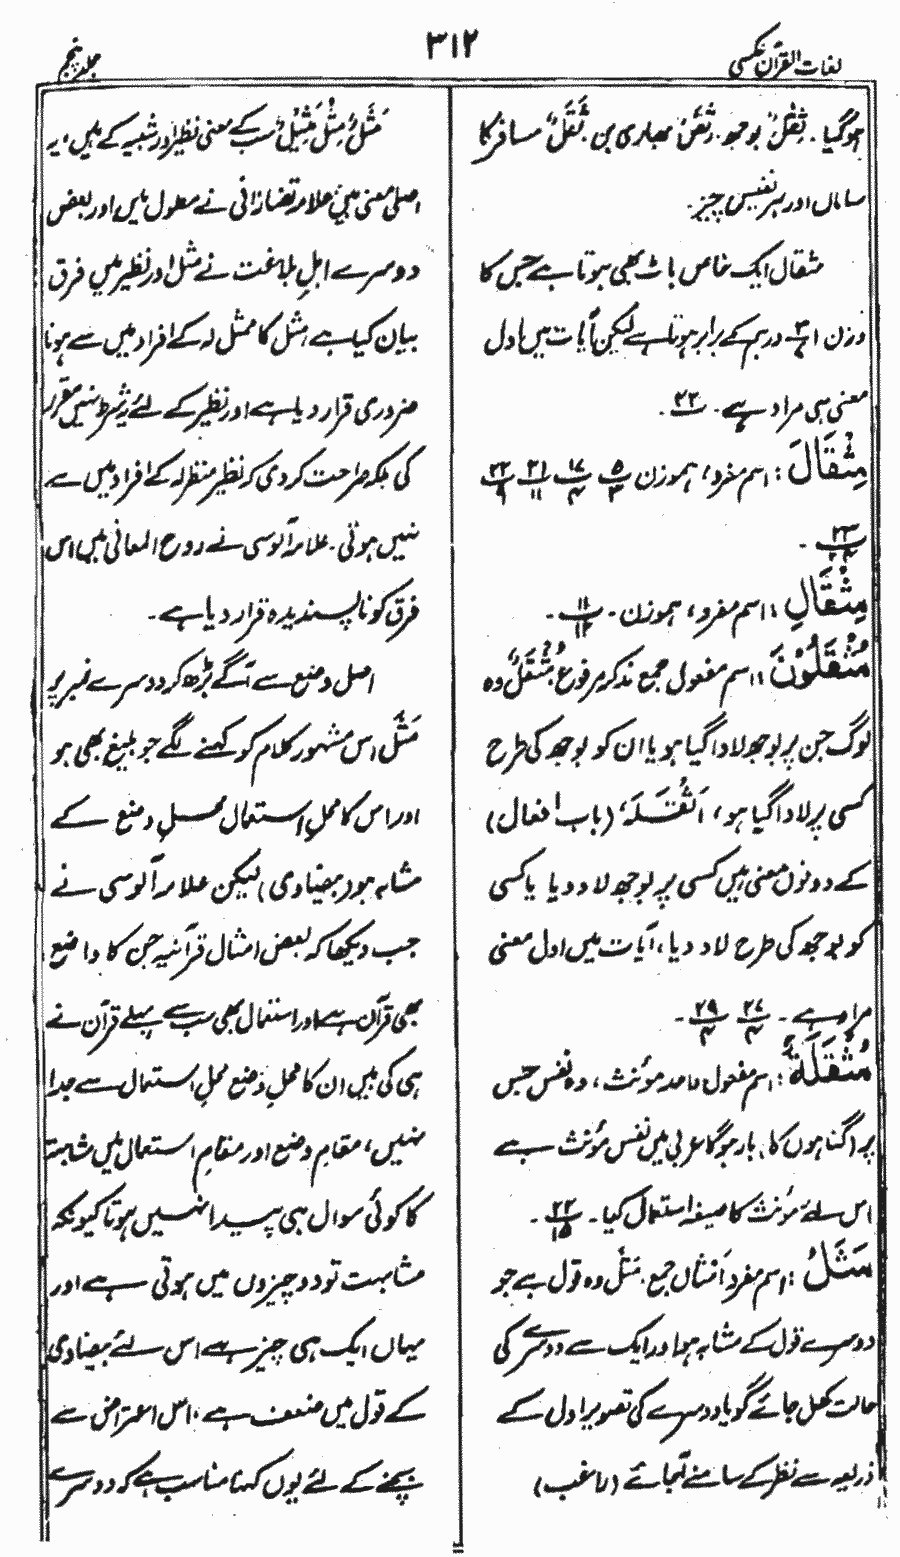 لغات القرآن عکسی
۳۱۲
جلد پنجم
ہوگیا۔ ثِقْلٌ بوجھ۔ ثَقَلٌ بھاری پن ثَقَلٌ مسافر کا
ساماں اور ہر نفیس چیز۔
مثقال ایک خاص باٹ بھی ہوتا ہے جس کا
وزن ۱ ۳/۷ درہم کے برابر ہوتا ہے لیکن آیات میں اول
معنی ہی مراد ہے۔ ۲۲
مِثْقَالَ: اسم مفرد، ہموزن ۵/۳ ۱۷/۴ ۲۱/۱۱ ۲۲/۹
۲۳/۲۴ ۔
مِثْقَالِ: اسم مفرد، ہموزن۔ ۱۱/۱۲ ۔
مُثْقَلُوْنَ: اسم مفعول جمع مذکر مرفوع مُثْقَلٌ وہ
لوگ جن پر بوجھ لادا گیا ہو یا ان کو بوجھ کی طرح
کسی پر لادا گیا ہو، اَثْقَلَہٗ، (باب افعال)
کے دونوں معنی ہیں کسی پر بوجھ لاد دیا یا کسی
کو بوجھ کی طرح لاد دیا، آیات میں اول معنی
مراد ہے۔ ۲۷/۴ ۲۹/۴ ۔
مُثْقَلَۃٌ: اسم مفعول واحد مونث، وہ نفس جس
پر گناہوں کا بار ہوگا عربی میں نفس مؤنث ہے
اس لئے مؤنث کا صیغہ استعمال کیا۔ ۲۲/۱۵ ۔
مَثَلُ: اسم مفرد اَمْثَال جمع۔ مَثَلٌ وہ قول ہے جو
دوسرے قول کے مشابہ ہو اور ایک سے دوسرے کی
حالت کھل جائے گویا دوسرے کی تصویر اول کے
ذریعہ سے نظر کے سامنے آجائے (راغب)
مَثَلٌ، مِثْلٌ، مَثِیْلٌ سب کے معنی نظیر اور شبیہ کے ہیں، یہ
اصلی معنی ہیں علامہ تفتازانی نے مطول میں اور بعض
دوسرے اہلِ بلاغت نے مثل اور نظیر میں فرق
بیان کیا ہے، مثل کا ممثل لہ کے افراد میں سے ہونا
ضروری قرار دیا ہے اور نظیر کے لئے یہ شرط نہیں مقرر
کی بلکہ صراحت کردی کہ نظیر منظرلہ کے افراد میں سے
نہیں ہوتی۔ علامہ آلوسی نے روح المعانی میں اس
فرق کو ناپسندیدہ قرار دیا ہے۔
اصل وضع سے آگے بڑھ کر دوسرے نمبر پر
مَثَلٌ اس مشہور کلام کو کہنے لگے جو بلیغ بھی ہو
اور اس کا محلِ استعمال محلِ وضع کے
مشابہ ہو (بیضاوی) لیکن علامہ آلوسی نے
جب دیکھا کہ بعض امثال قرآنیہ جن کا واضع
بھی قرآن ہے اور استعمال بھی سب سے پہلے قرآن نے
ہی کی ہیں ان کا محلِ وضع محلِ استعمال سے جدا
نہیں، مقامِ وضع اور مقامِ استعمال میں مشابہت
کا کوئی سوال ہی پیدا نہیں ہوتا کیونکہ
مشابہت تو دو چیزوں میں ہوتی ہے اور
یہاں ایک ہی چیز ہے اس لئے بیضاوی
کے قول میں ضعف ہے، اس اعتراض سے
بچنے کے لئے یوں کہنا مناسب ہے کہ دوسرے